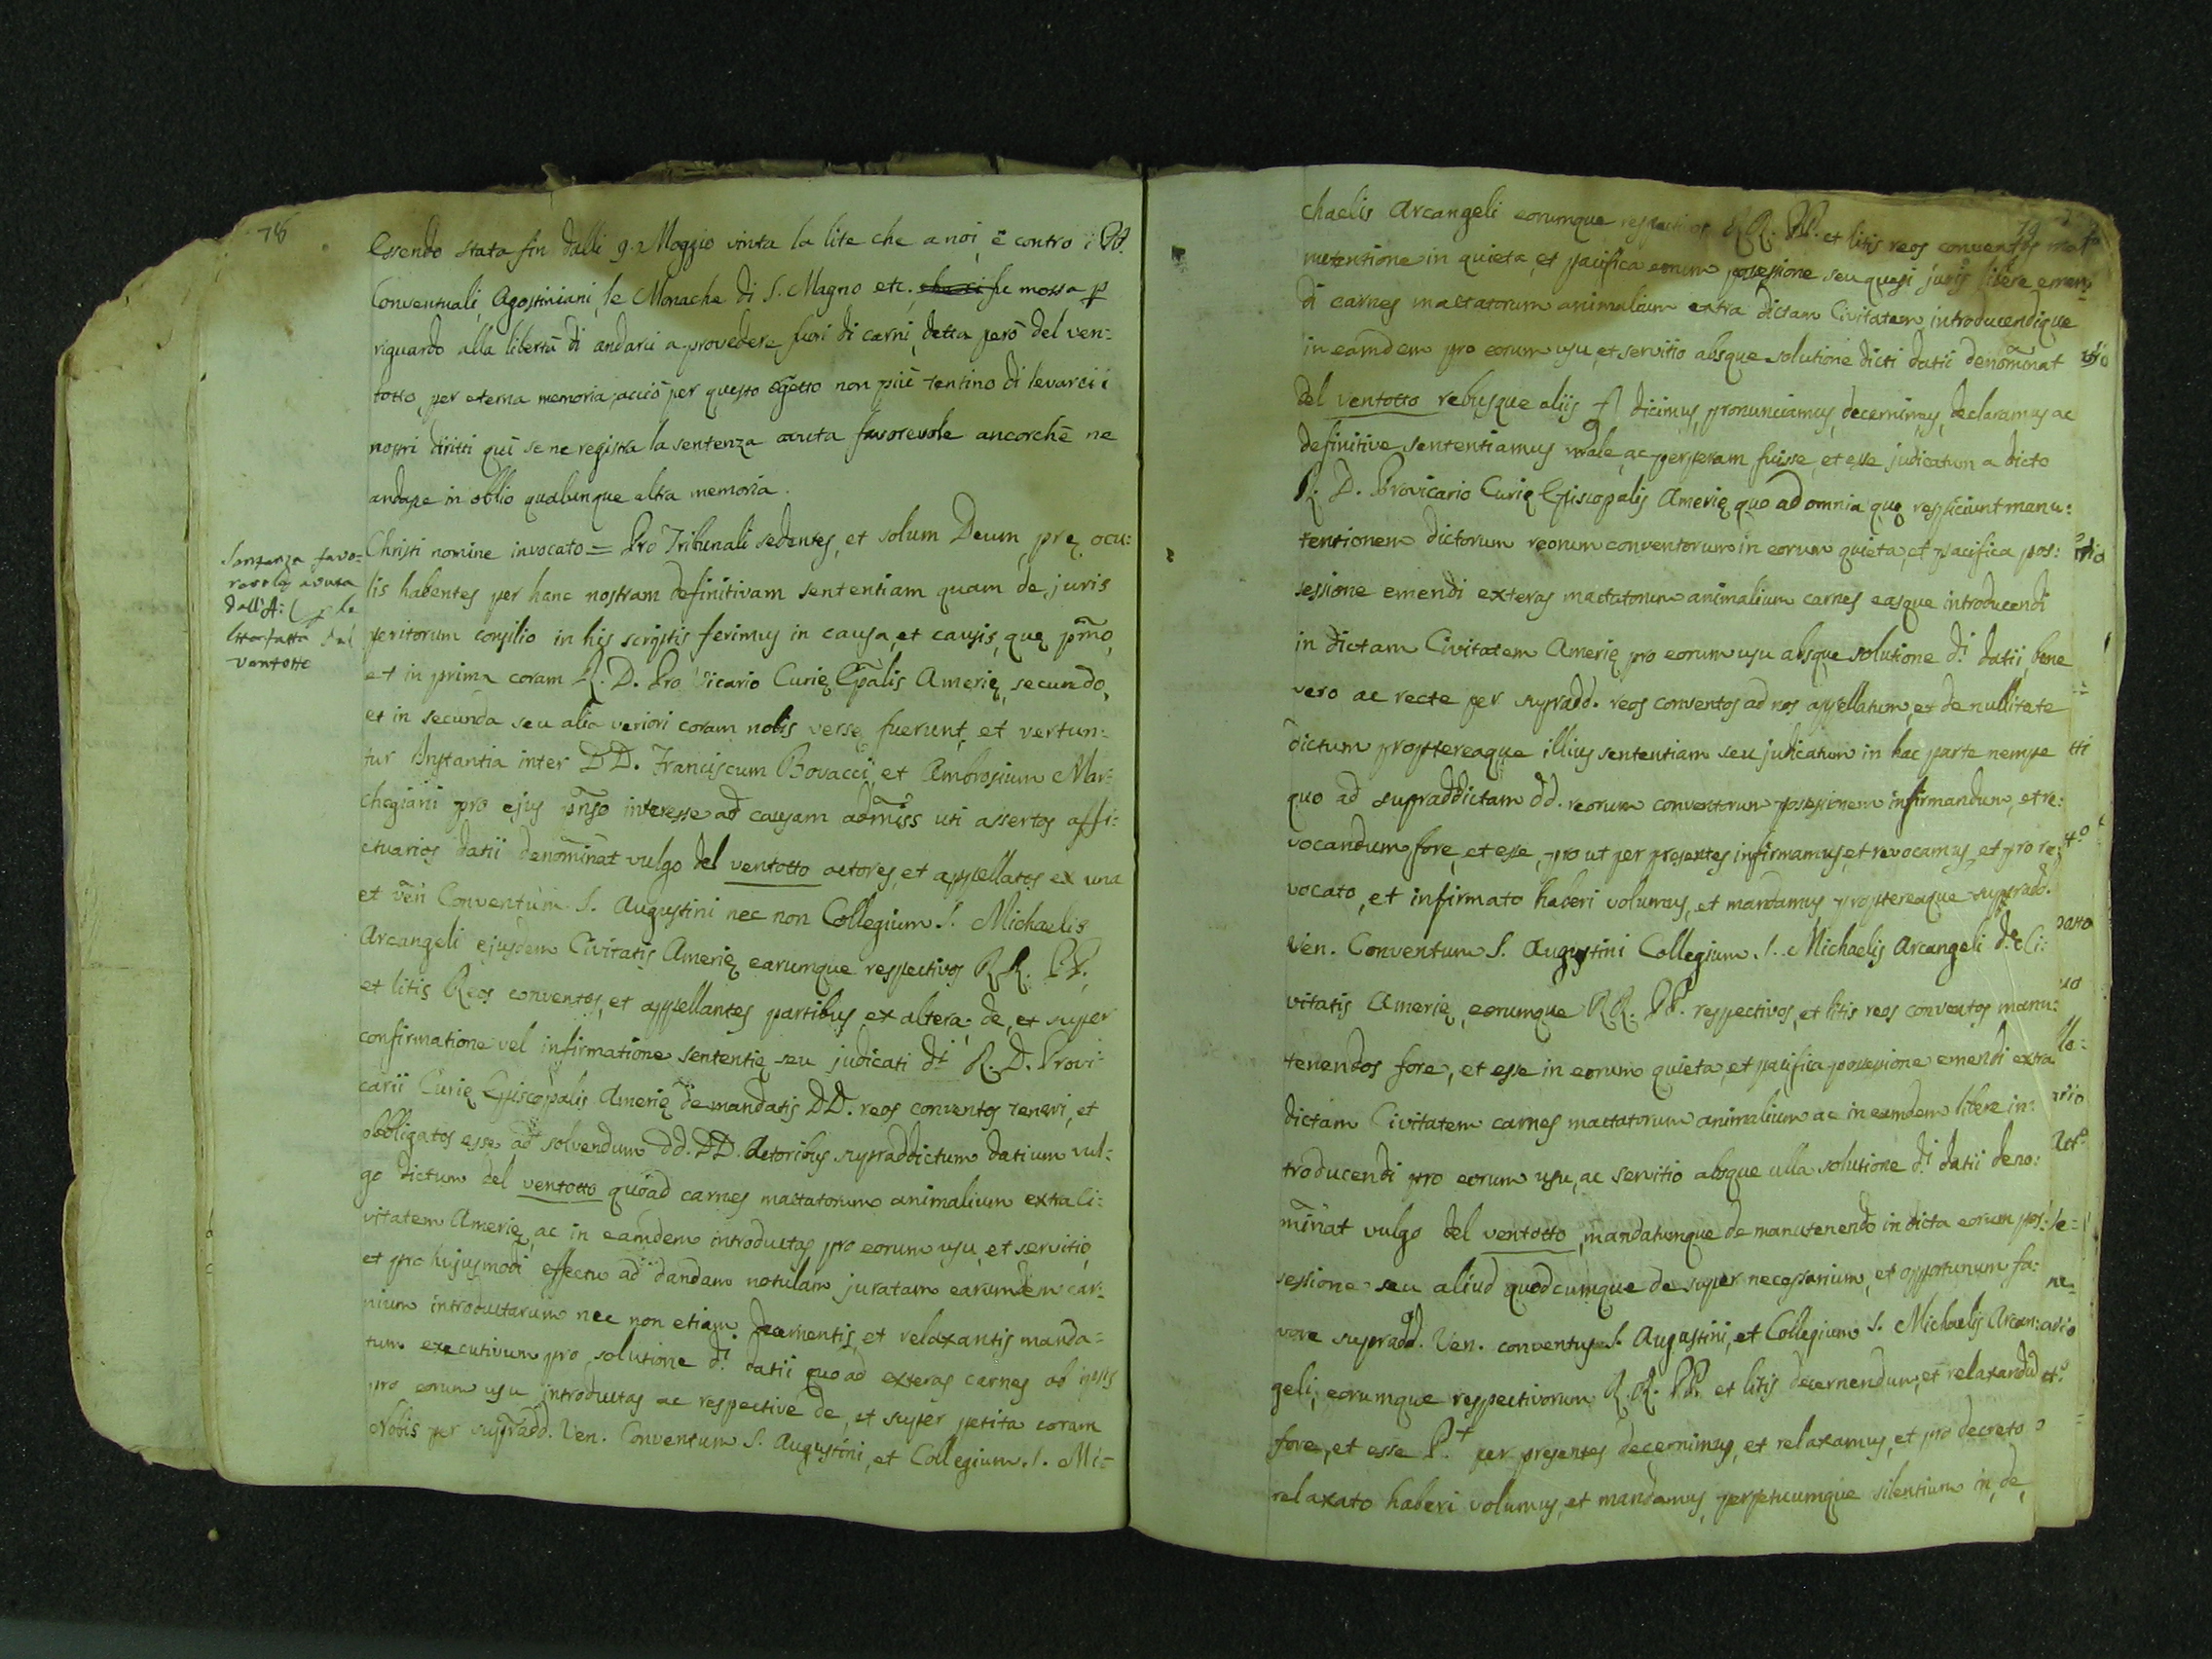 78
Essendo stata fin dalli 9. Maggio vinta la lite che a noi, e contro i PP.
Conventuali, Agostiniani, le Monache di S. Magno etc. che ci fu mossa p
riguardo alla libertà di andarci a provedere fuori di carni, detta però del ven:
totto, per eterna memoria, acciò per questo oggetto non più tentino di levarci i
nostri diritti quì se ne registra la sentenza avuta favorevole ancorchè ne
andasse in oblio qualunque altra memoria.
Sentenza favo-
revole avuta
dall'A: p la
lite fatta del
ventotto
Christi nomine invocato = Pro Tribunali sedentes, et solum Deum prę ocu:
lis habentes per hanc nostram definitivam sententiam quam de juris
peritorum consilio in his scriptis ferimus in causa, et causis, quę pm̃o,
et in prima coram R. D. Pro Vicario Curię Epãlis Amerię, secundo,
et in secunda seu alia veriori coram nobis versę fuerunt, et vertun:
tur Instantia inter DD. Franciscum Bovacci, et Ambrosium Mar:
chegiani pro ejus pñso interesse ad causam admiss uti assertos affi:
ctuarios datii denominat vulgo del ventotto actores, et appellatos ex una
et veñ Conventum S. Augustini nec non Collegium S. Michaelis
Arcangeli ejusdem Civitatis Amerię earumque respectivos RR. PP.
et litis Reos conventos, et appellantes partibus ex altera; de, et super
confirmatione vel infirmatione sententię seu judicati di R. D. Provi:
carii Curię Episcopalis Amerię de mandatis DD. reos conventos teneri, et
obbligatos esse ad solvendum dd. DD. Actoribus supraddictum datium vul:
go dictum del ventotto quoad carnes mactatorum animalium extra Ci:
vitatem Amerię, ac in eamdem introductas pro eorum usu, et servitio,
et pro hujusmodi effectu ad dandam notulam juratam earumdem car:
nium introductarum nec non etiam decernentis, et relaxantis manda=
tum executivum pro solutione di datii quo ad exteras carnes ab ipsis
pro eorum usu introductas ac respective de, et super petita coram
Nobis per supradd. Ven. Conventum S. Augustini, et Collegium S. Mi=
79
chaelis Arcangeli eorumque respectivos RR. PP. et litis reos conventos ma
nutentione in quieta, et pacifica eorum possessione seu quasi juris libere emen:
di carnes mactatorum animalium extra dictam Civitatem introducendique
in eamdem pro eorum usu, et servitio absque solutione dicti datii denominat
del ventotto rebusque aliis dicimus, pronunciamus, decernimus, declaramus ac
definitive sententiamus male, ac perperam fuisse, et esse judicatum a dicto
R. D. Provicario Curię Episcopalis Amerię quo ad omnia quę respiciunt manu:
tentionem dictorum reorum conventorum in eorum quieta, et pacifica pos:
sessione emendi exteras mactatorum animalium carnes easque introducendi
in dictam Civitatem Amerię pro eorum usu absque solutione di datii, bene
vero ac recte per supradd. reos conventos ad nos appellatum, et de nullitate
dictum proptereaque illius sententiam seu judicatum in hac parte nempe
quo ad supraddictam dd. reorum conventorum possessionem infirmandum, et re:
vocandum fore, et esse, pro ut per presentes infirmamus, et revocamus, et pro re:
vocato, et infirmato haberi volumus, et mandamus, proptereaque supradd.
Ven. Conventum S. Augustini Collegium S. Michaelis Arcangeli de Ci:
vitatis Amerię, eorumque RR. PP. respectivos, et litis reos conventos manu:
tenendos fore, et esse in eorum quieta, et pacifica possessione emendi extra
dictam Civitatem carnes mactatorum animalium ac in eamdem libere in:
troducendi pro eorum usu, ac servitio absque ulla solutione di datii deno:
minat vulgo del ventotto, mandatumque de manutenendo in dicta eorum pos:
sessione seu aliud quodcumque desuper necessarium, et opportunum fa:
vore supradd. Ven. conventus S. Augustini, et Collegium S. Michaelis Arcan:
geli, eorumque respectivorum R.R. PP. et litis decernendum, et relaxandu
fore, et esse P.t per presentes decernimus, et relaxamus, et pro decreto
relaxato haberi volumus, et mandamus, perpetuumque silentium in, de,